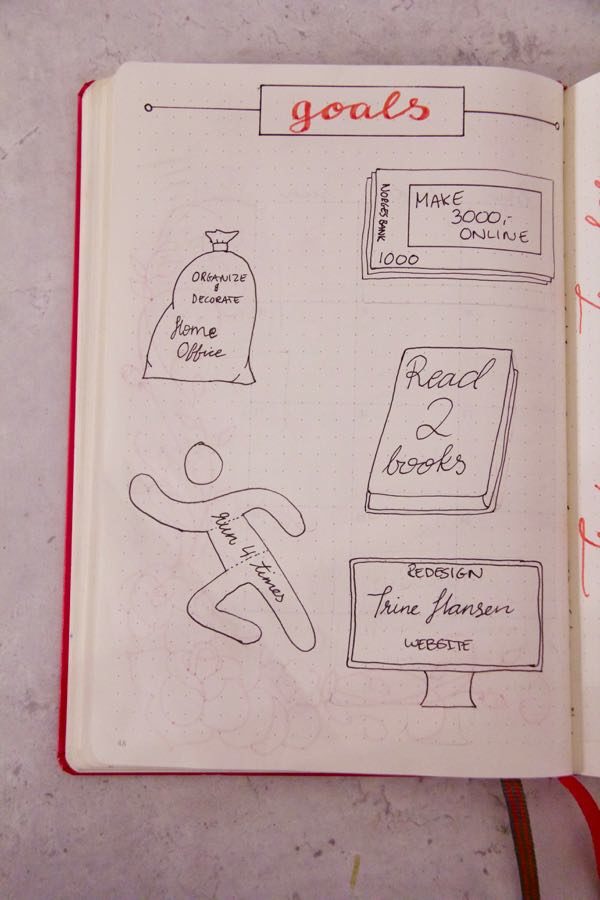 goals
NORGES BANK
MAKE
3000,-
ONLINE
1000
ORGANIZE
&
DECORATE
Home
Office
Read
2
books
run 4 times
REDESIGN
Trine Hansen
WEBSITE
48